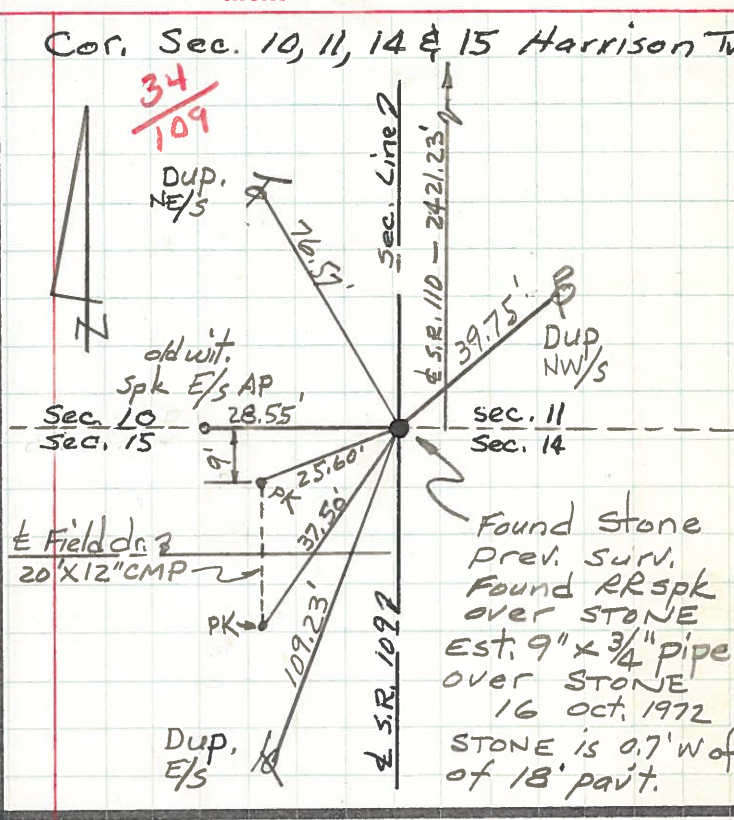 Cor. Sec. 10, 11, 14 & 15 Harrison Tw
34
109
Dup.
NE/s
76.57'
Sec. Line
℄ S.R. 110 — 2421.23'
39.75'
Dup
NW/s
N
old wit.
spk E/s AP
28.55'
Sec. 10
Sec. 15
sec. 11
Sec. 14
9'
25.60'
PK
37.50'
℄ Field dr.
20'X12"CMP
PK
109.23'
℄ S.R. 109
Dup.
E/s
Found Stone
prev. surv.
Found RR spk
over STONE
Est. 9" x 3/4" pipe
over STONE
16 oct. 1972
STONE is 0.7' W of
of 18' pav't.